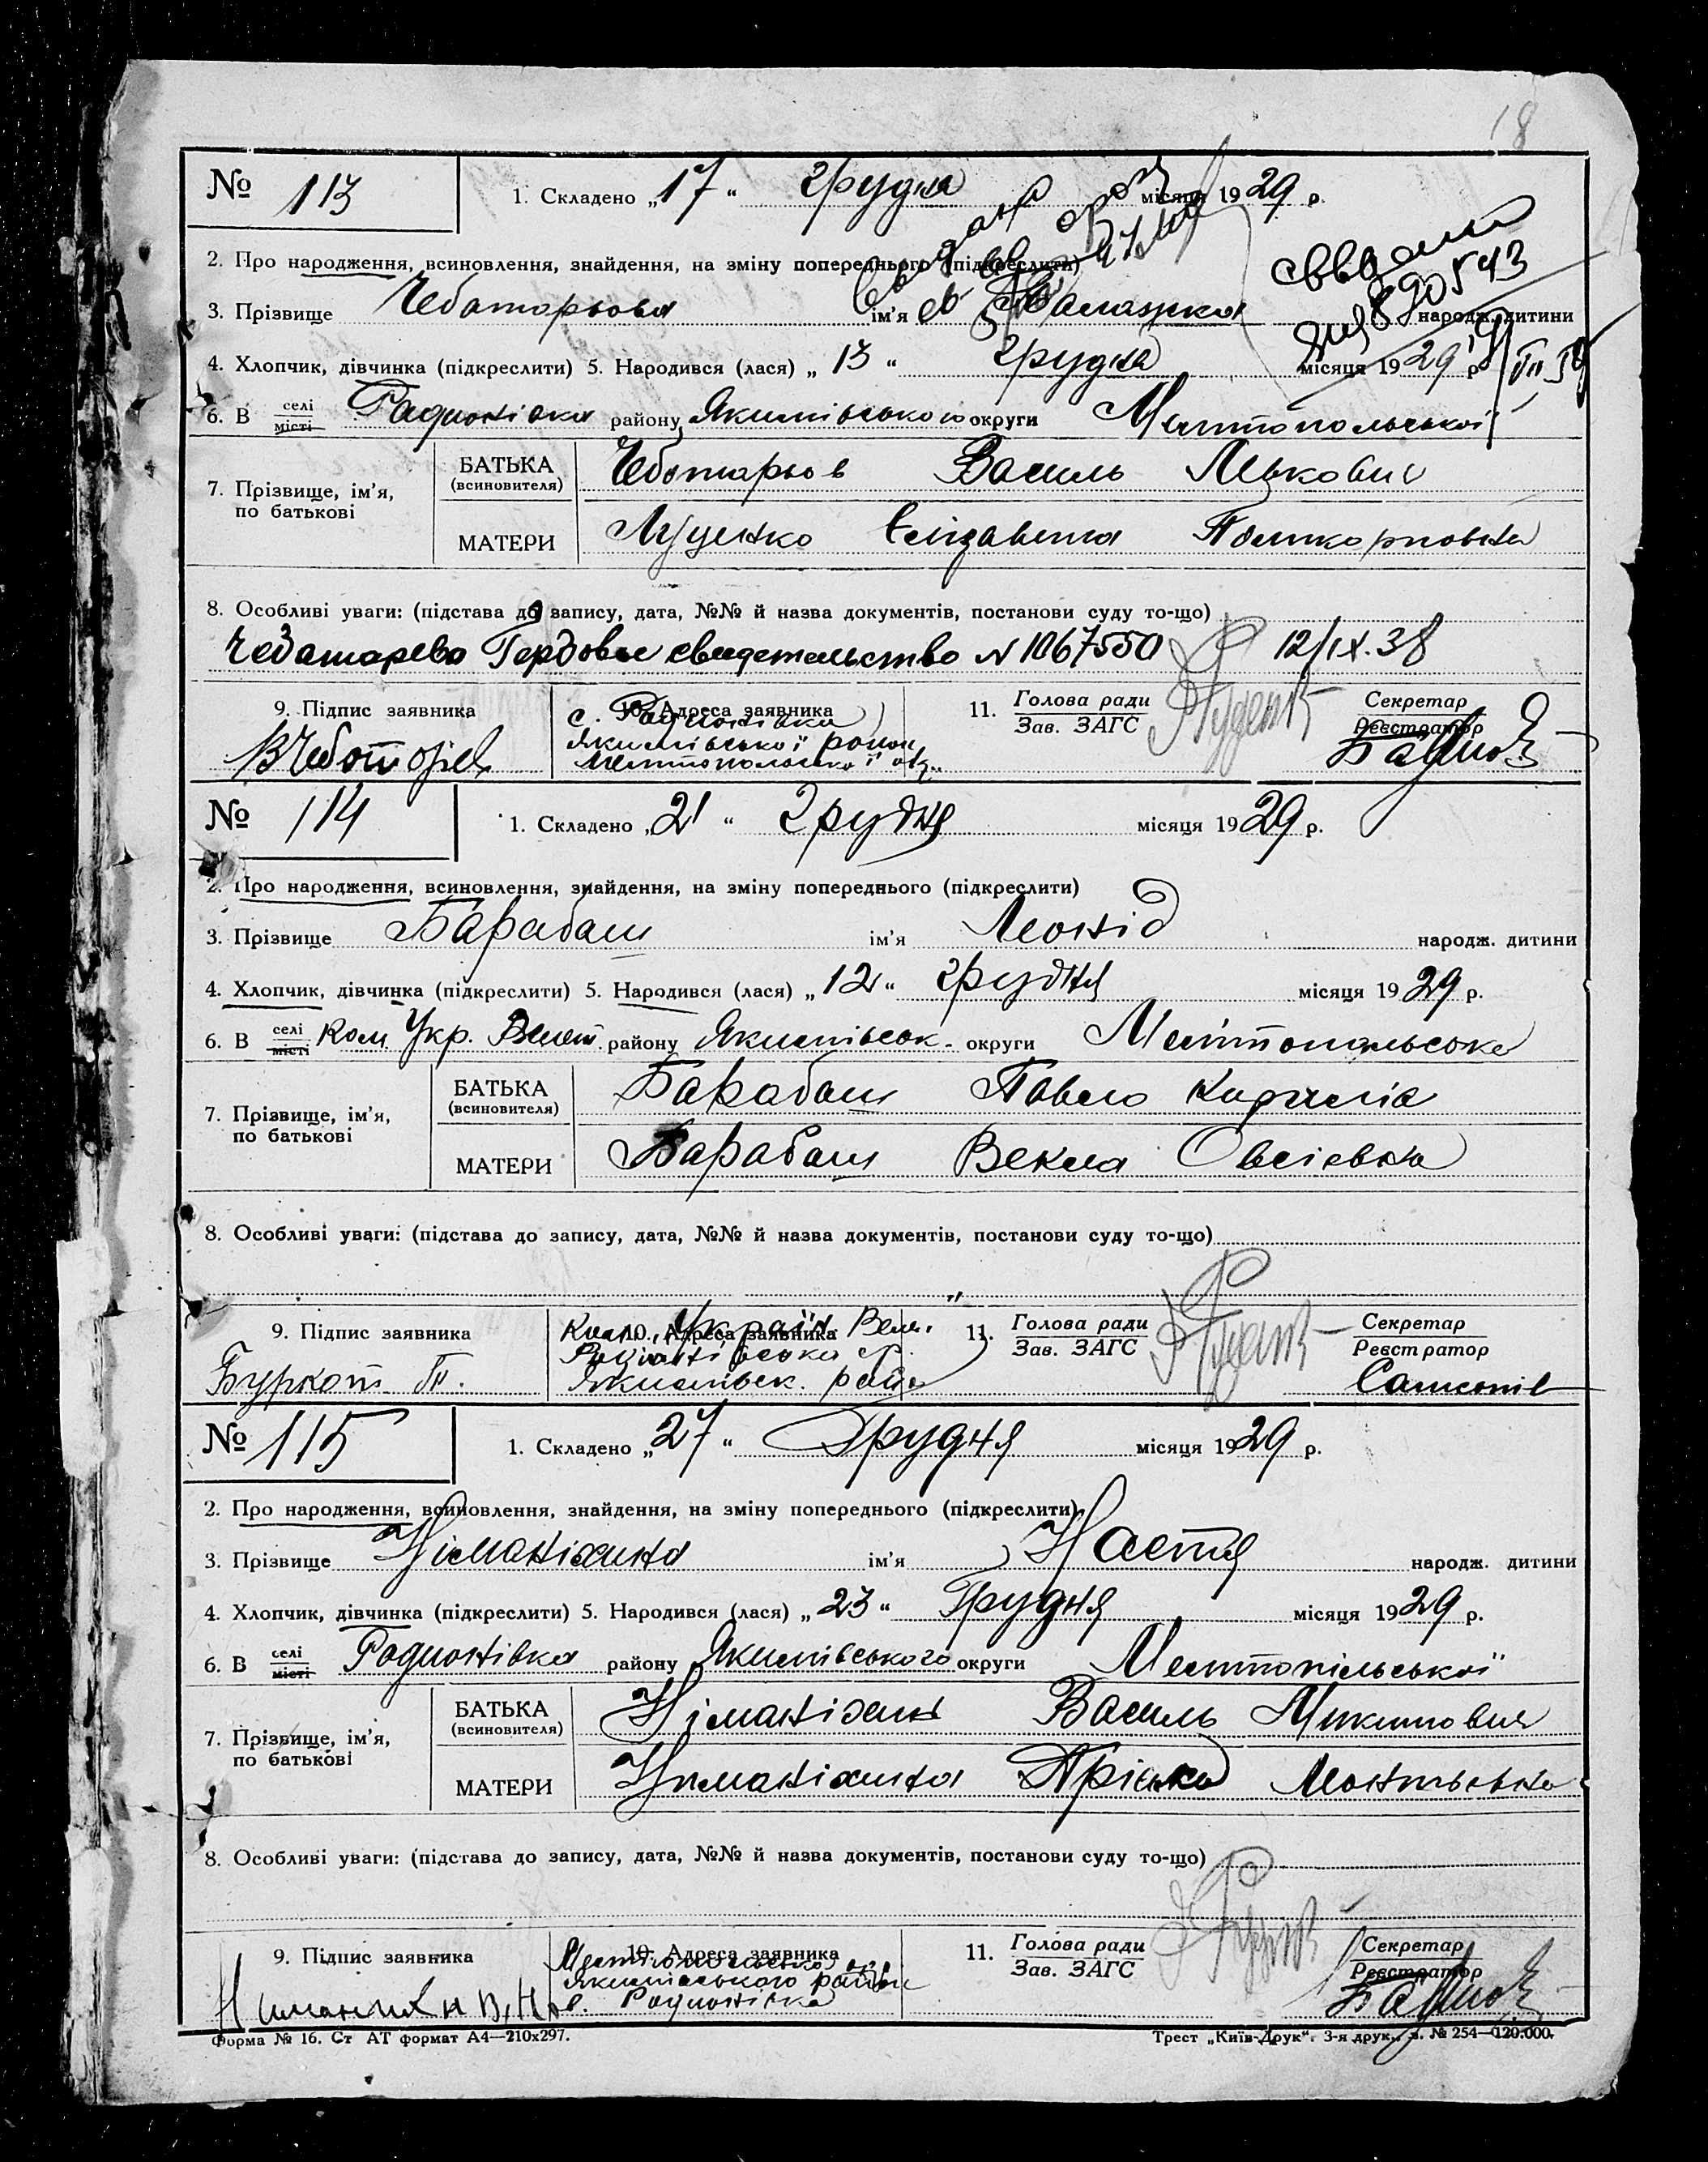 18
№ 113
1. Складено „17“ грудня місяця 1929 р.
2. Про народження, всиновлення, знайдення, на зміну попереднього (підкреслити)
890543
3. Прізвище Чеботарьова ім'я народж. дитини
4. Хлопчик, дівчинка (підкреслити) 5. Народився (лася) „13“ грудня місяця 1929 р.
6. В селі місті Радионівка району Якимівського округи Мелітопольської
7. Прізвище, ім'я, по батькові
БАТЬКА (всиновителя) Чботарьов Василь
МАТЕРИ Луценко Єлізавета
8. Особливі уваги: (підстава до запису, дата, №№ й назва документів, постанови суду то-що)
свидетельство N 1067550 12/IX.38
9. Підпис заявника
10. Адреса заявника
11. Голова ради Зав. ЗАГС
Секретар Реєстратор
В Чеботорів
с. Радионівка
Якимівської район
Мелітопольської окр.
№ 114
1. Складено „21“ Грудня місяця 1929 р.
2. Про народження, всиновлення, знайдення, на зміну попереднього (підкреслити)
3. Прізвище Барабаш ім'я Леонід народж. дитини
4. Хлопчик, дівчинка (підкреслити) 5. Народився (лася) „12“ грудня місяця 1929 р.
6. В селі місті Ком. Укр. Велет. району Якимівськ. округи Мелітопольська
7. Прізвище, ім'я, по батькові
БАТЬКА (всиновителя) Барабаш Павло
МАТЕРИ Барабаш Векла Овсіевна
8. Особливі уваги: (підстава до запису, дата, №№ й назва документів, постанови суду то-що)
9. Підпис заявника
10. Адреса заявника
11. Голова ради Зав. ЗАГС
Секретар Реєстратор
Буркот П.
Ком. Україн. Вел.
Радионівська с.р.
Якимівськ. район
№ 115
1. Складено „27“ Грудня місяця 1929 р.
2. Про народження, всиновлення, знайдення, на зміну попереднього (підкреслити)
3. Прізвище Німаніхина ім'я Настя народж. дитини
4. Хлопчик, дівчинка (підкреслити) 5. Народився (лася) „23“ Грудня місяця 1929 р.
6. В селі місті Радионівка району Якимівського округи Мелітопільської
7. Прізвище, ім'я, по батькові
БАТЬКА (всиновителя) Німаніхин Василь Микитович
МАТЕРИ Ниманіхина Прісько
8. Особливі уваги: (підстава до запису, дата, №№ й назва документів, постанови суду то-що)
9. Підпис заявника
10. Адреса заявника
11. Голова ради Зав. ЗАГС
Секретар Реєстратор
Ниманихин В. Н.
Мелітопольська окр.
Якимівського район
с. Радионівка
Форма № 16. Ст АТ формат А4—210x297.
Трест „Київ-Друк“. 3-я друк., з. № 254—120.000.